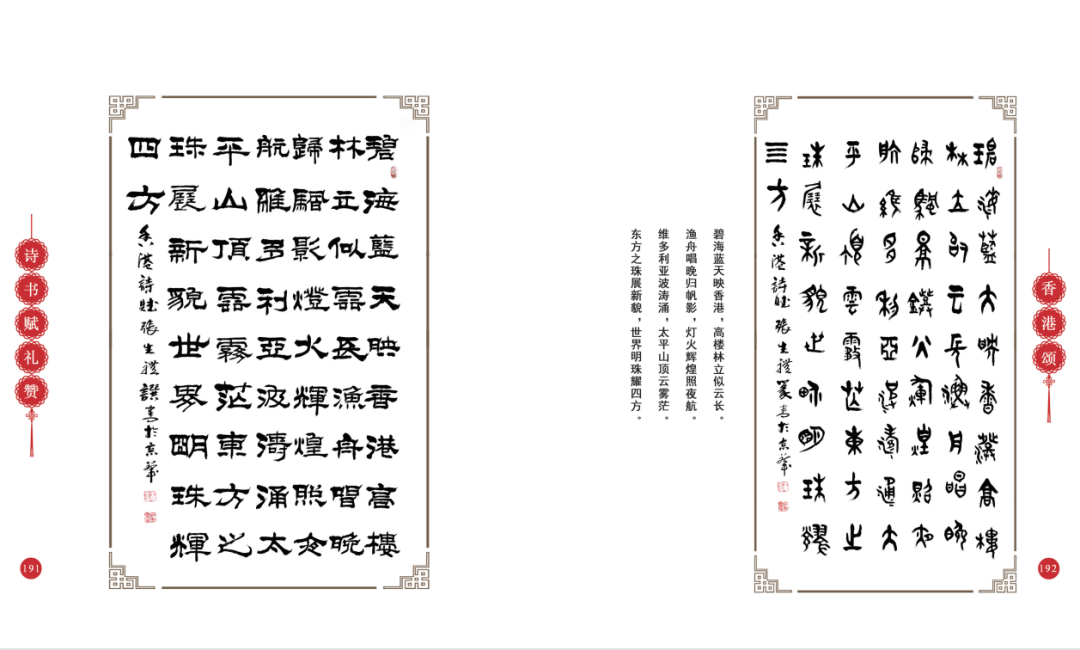 诗书赋礼赞
191
碧海藍天映香港高樓
林立似雲長漁舟唱晚
歸颿影燈火輝煌照夜
航維多利亞波濤涌太
平山頂雲霧茫東方之
珠展新貌世界明珠輝
四方
香港詩賦張生禮譔書於京華
碧海蓝天映香港，高楼林立似云长。
渔舟唱晚归帆影，灯火辉煌照夜航。
维多利亚波涛涌，太平山顶云雾茫。
东方之珠展新貌，世界明珠耀四方。
碧海藍天映香港高樓
林立似雲長漁舟唱晚
歸颿影鐙火煇煌照夜
航維多利亞波濤涌太
平山頂雲霧茫東方之
珠展新貌世界明珠耀
亖方
香港詩賦張生禮篆書於京華
香港颂
192